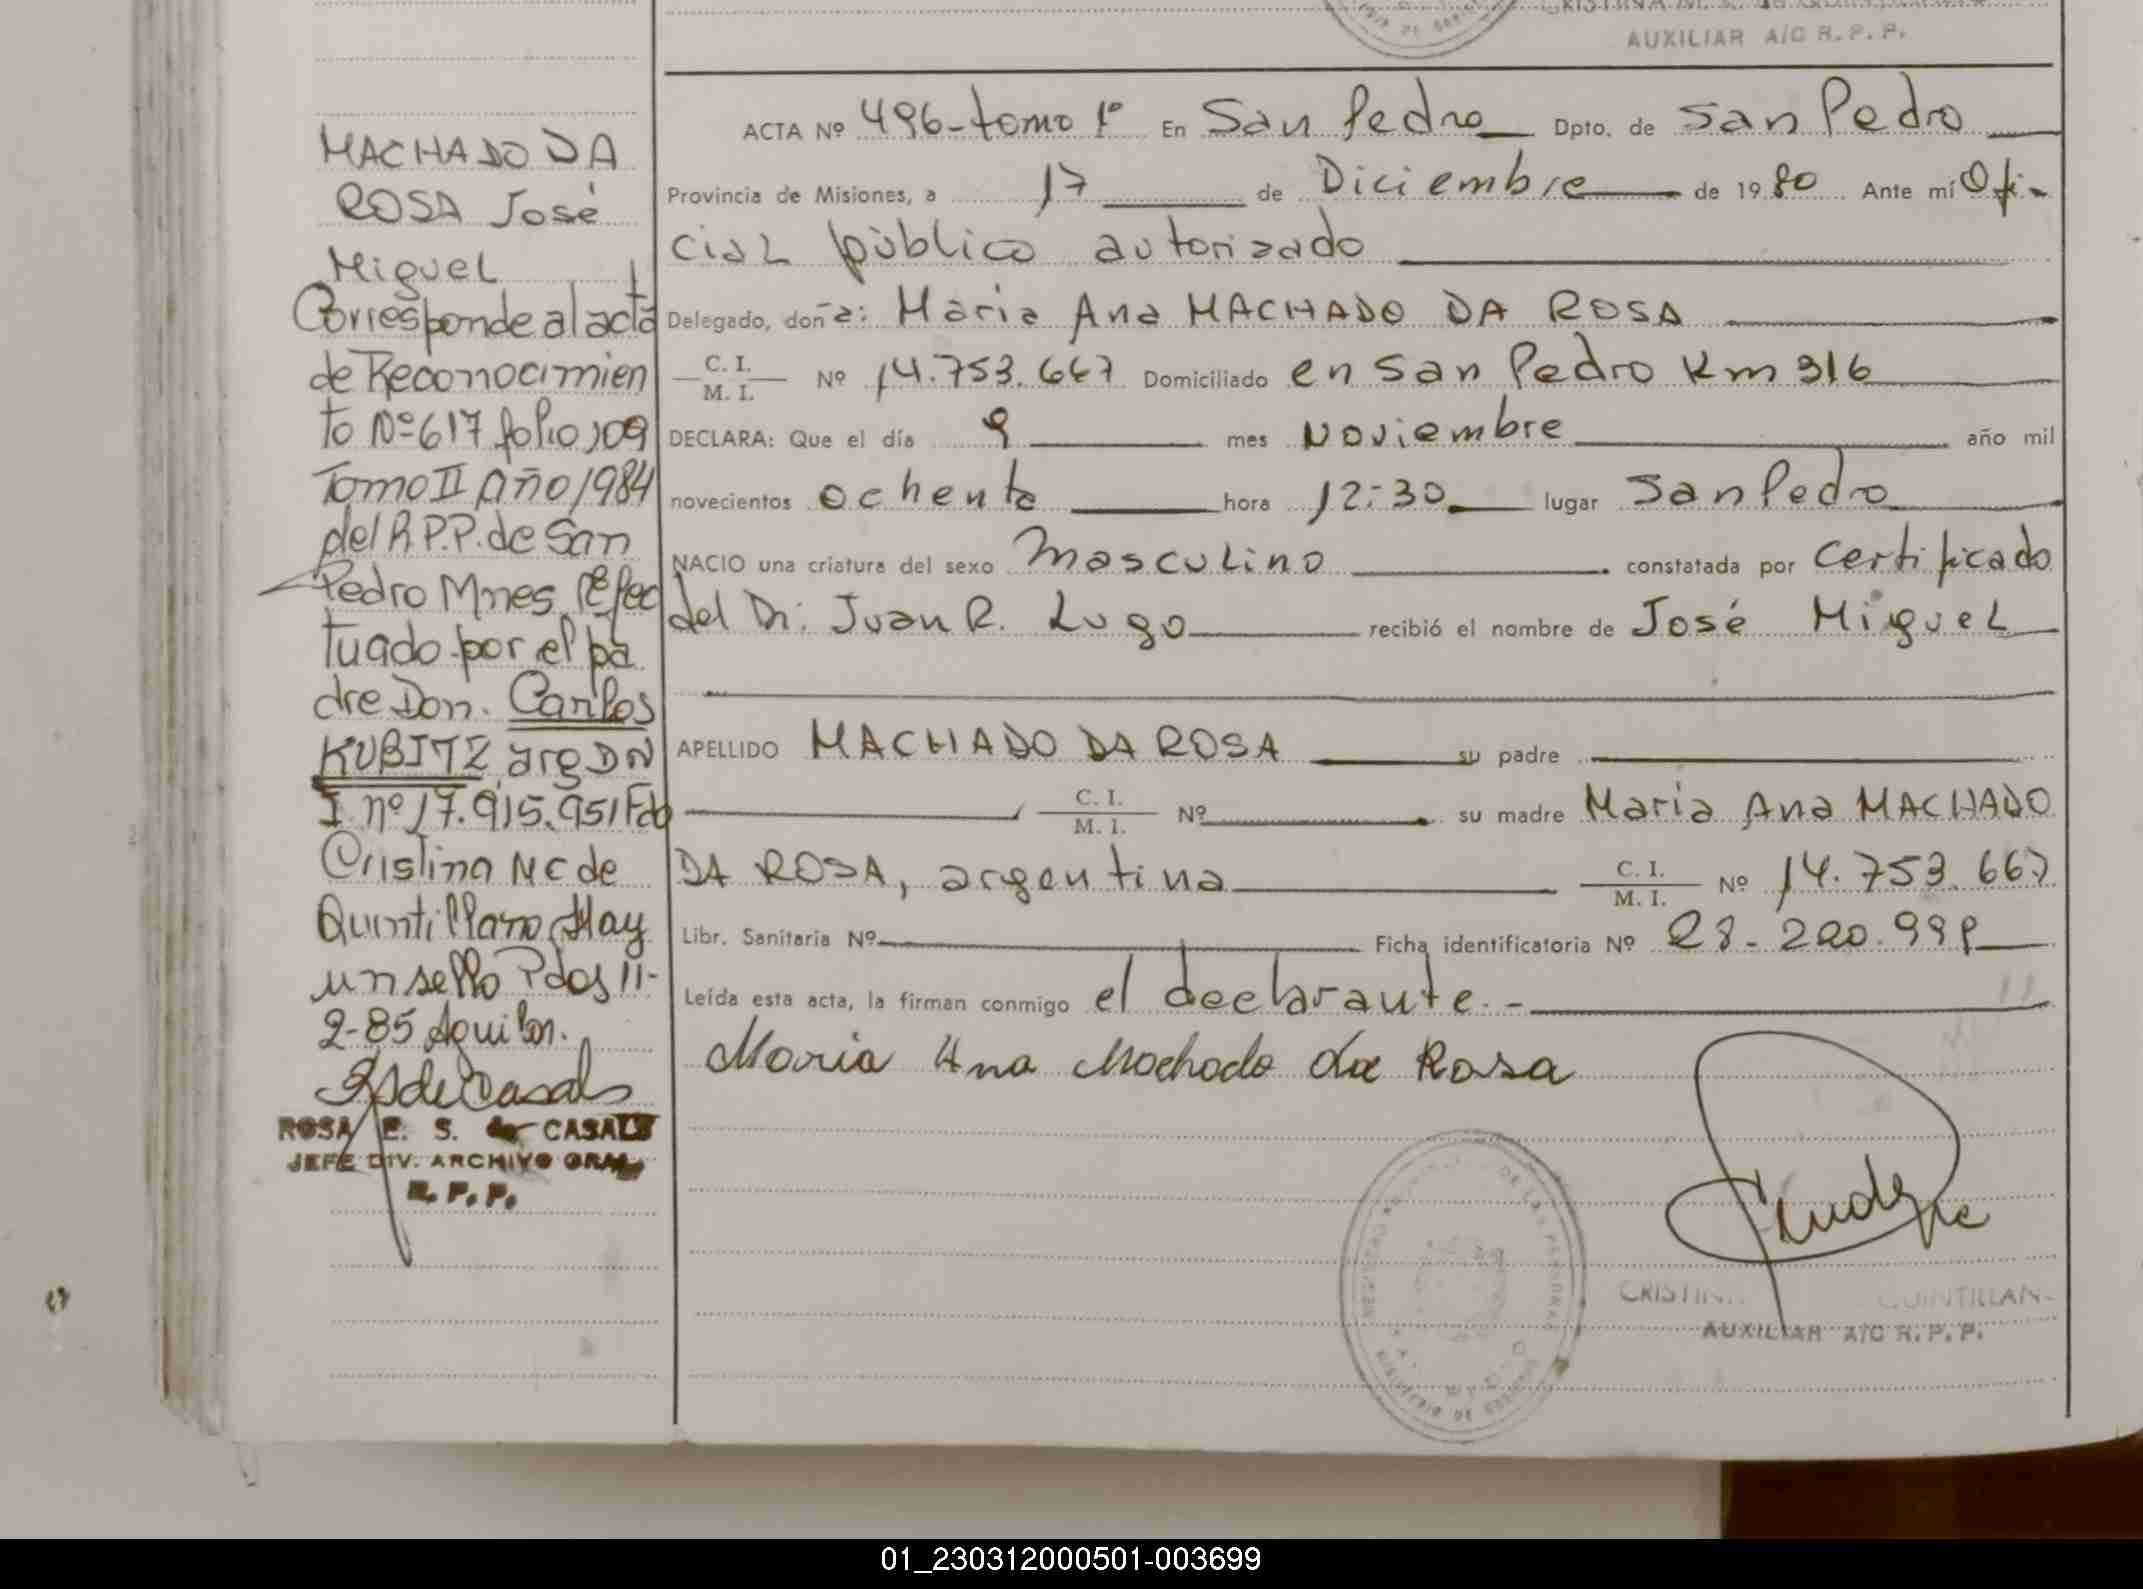 AUXILIAR A/C R.P.P.
MACHADO DA
ROSA José
Miguel
Corresponde al acta
de Reconocimien
to Nº 617 folio 109
Tomo II Año 1984
del R.P.P. de San
Pedro Mnes. Efec
tuado por el pa
dre Don. Carlos
KUBITZ arg DN
I nº 17.915.951 Fdo
Cristina M C de
Quintillano Hay
un sello Pdos 11-
2-85
ROSA E. S. de CASALS
JEFE DIV. ARCHIVO GRAL
R. P. P.
ACTA Nº 496-tomo 1º En San Pedro Dpto. de San Pedro
Provincia de Misiones, a 17 de Diciembre de 19 80 Ante mí Ofi-
cial público autorizado
Delegado, doña: Maria Ana MACHADO DA ROSA
C. I. / M. I. Nº 14.753.667 Domiciliado en San Pedro Km 316
DECLARA: Que el día 9 mes Noviembre año mil
novecientos ochenta hora 12:30 lugar San Pedro
NACIO una criatura del sexo masculino constatada por certificado
del Dr: Juan R. Lugo recibió el nombre de José Miguel
APELLIDO MACHADO DA ROSA su padre
C. I. / M. I. Nº su madre Maria Ana MACHADO
DA ROSA, argentina C. I. / M. I. Nº 14.753.667
Libr. Sanitaria Nº Ficha identificatoria Nº 28-220.998
Leída esta acta, la firman conmigo el declarante.-
Maria Ana Machado da Rosa
CRISTIN QUINTILLAN
AUXILIAR A/C R.P.P.
01_230312000501-003699